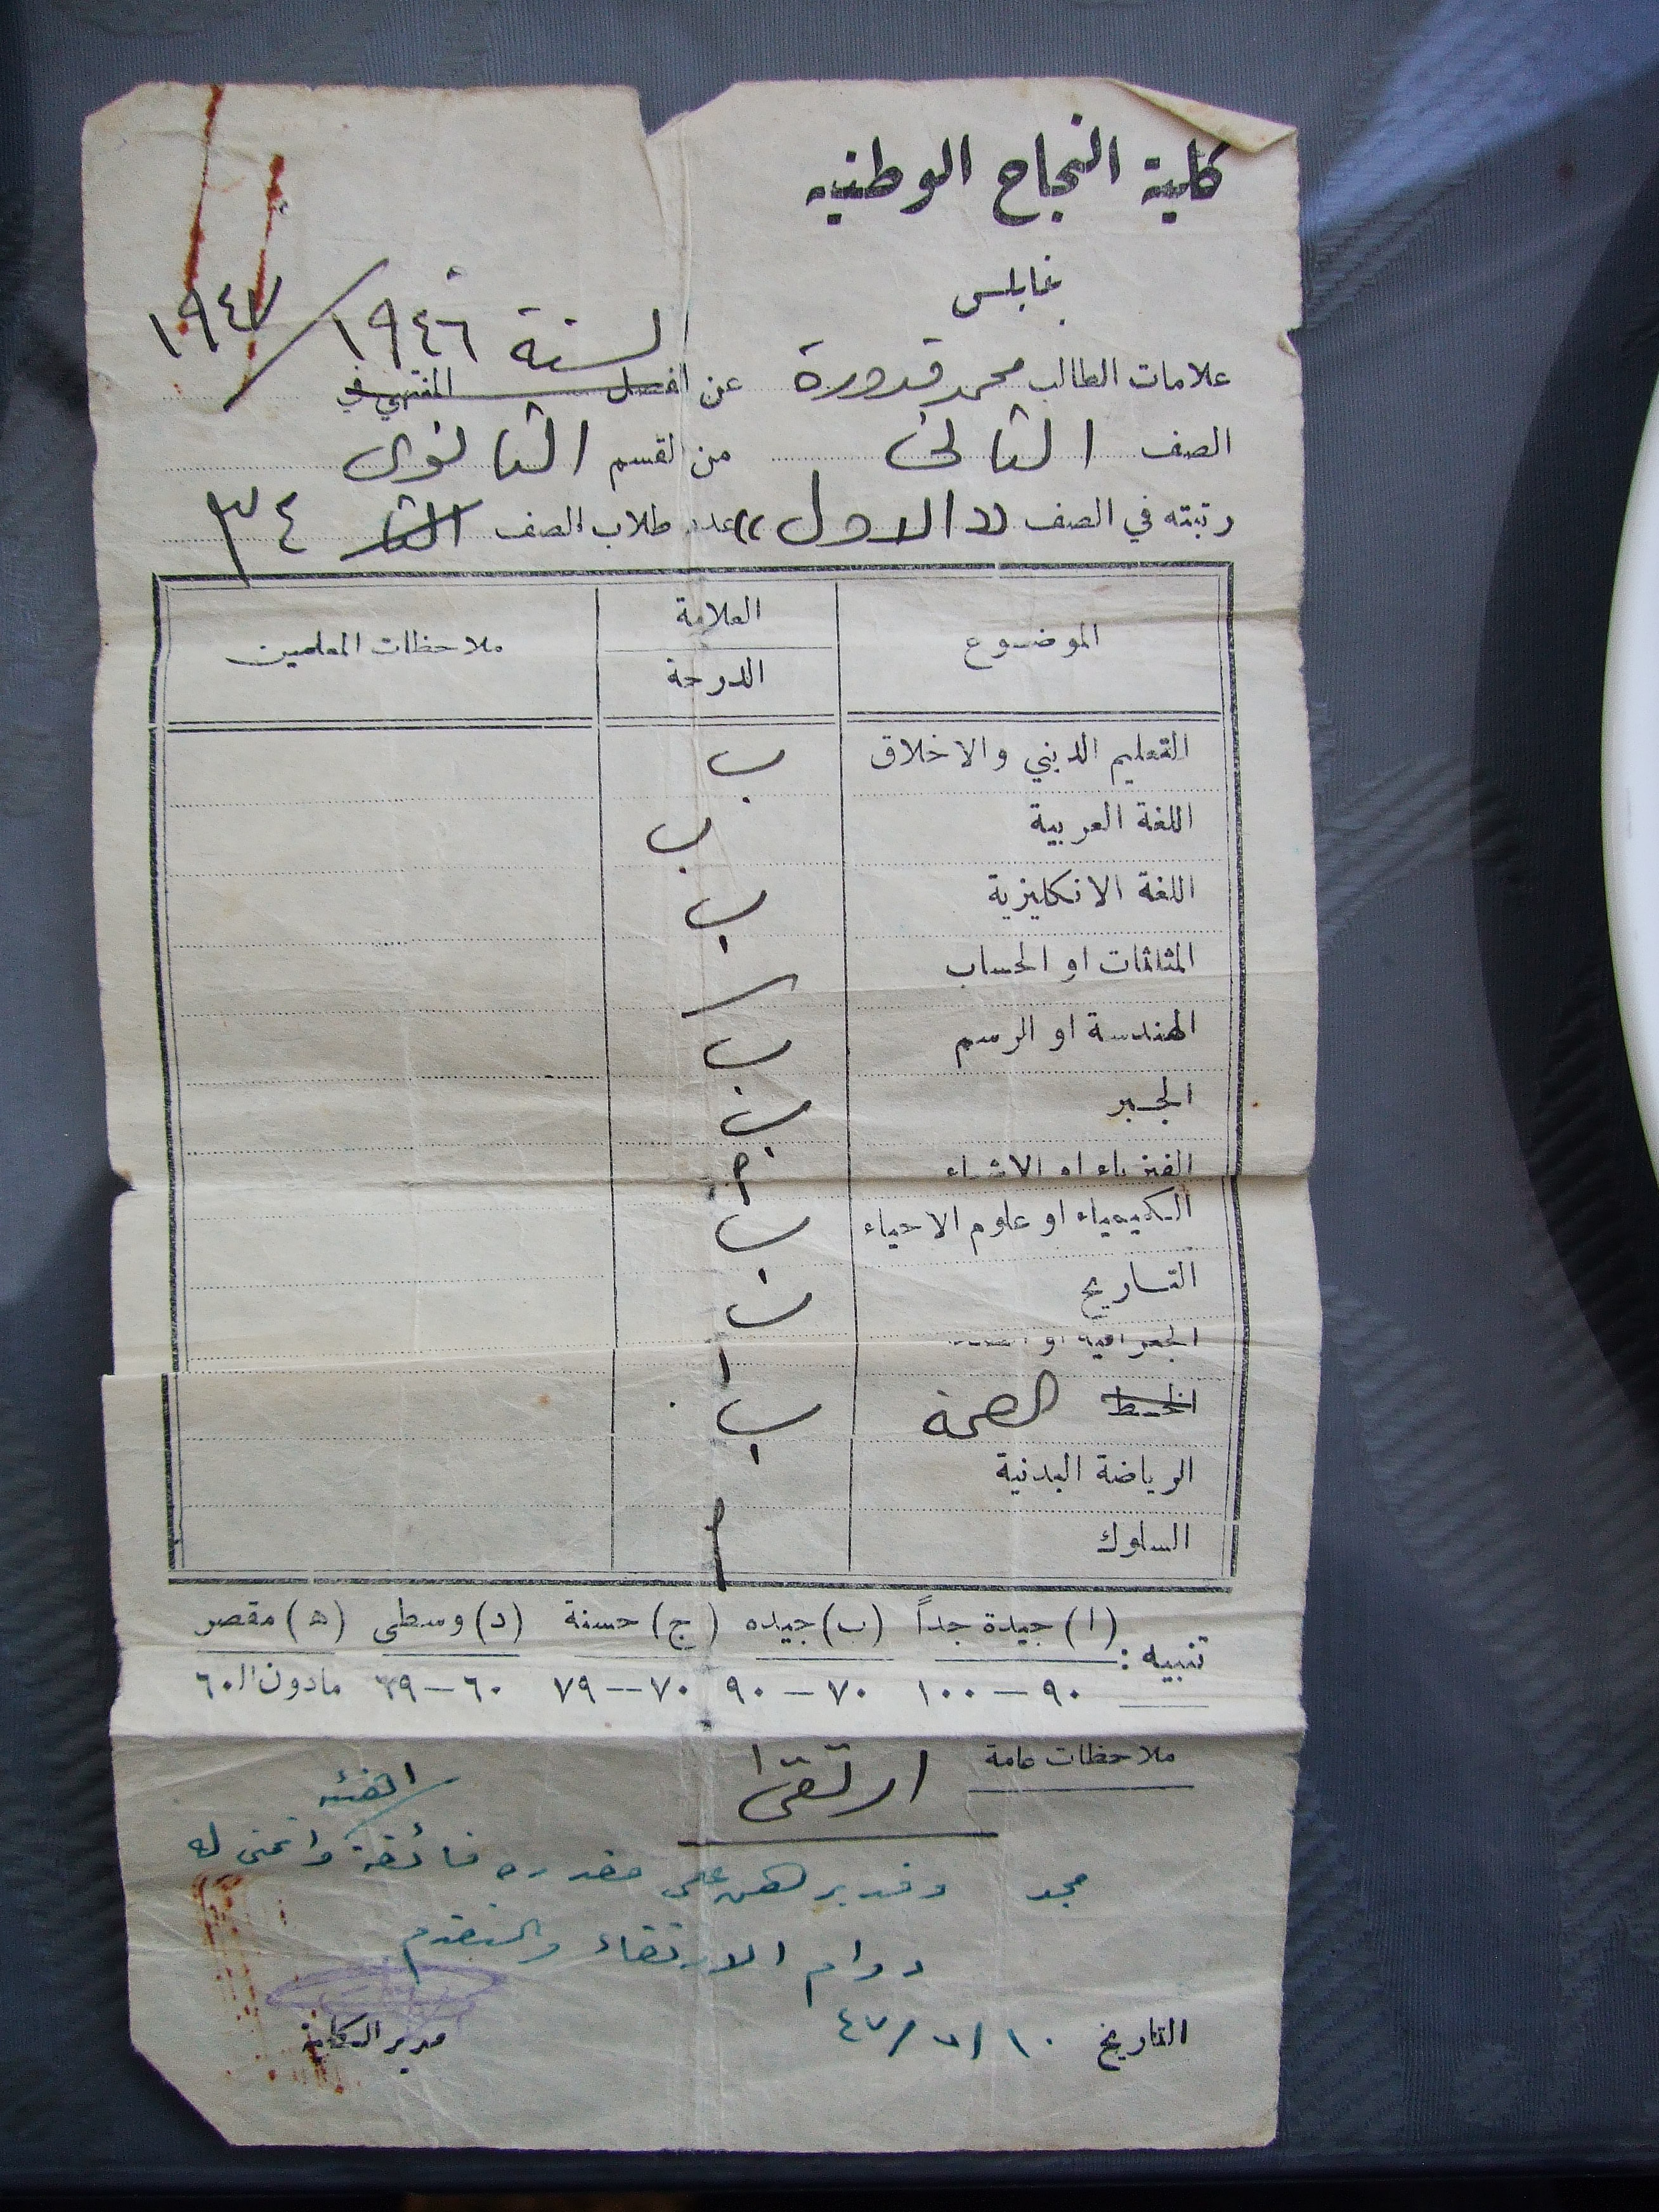 كلية النجاح الوطنية
بنابلس
علامات الطالب محمد قدورة عن الفصل المنتهي في لسنة ١٩٤٦ / ١٩٤٧
الصف الثاني من القسم الثانوي
رتبته في الصف «الاول» عدد طلاب الصف ٣٤
الموضوع العلامة الدرجة ملاحظات المعلمين
التعليم الديني والاخلاق ب
اللغة العربية ب
اللغة الانكليزية ب
المثلثات او الحساب
الهندسة او الرسم ب
الجبر ب
الفيزياء او الاشياء أ
الكيمياء او علوم الاحياء ب
التاريخ ب
الجغرافية او ا
الخط الصحة ب
الرياضة البدنية
السلوك أ
تنبيه : (ا) جيدة جداً (ب) جيده (ج) حسنة (د) وسطى (ه) مقصر
٩٠ — ١٠٠ ٧٠ — ٩٠ ٧٠ — ٧٩ ٦٠ — ٦٩ مادون ال ٦٠
ملاحظات عامة ارتقى
مجد وقد برهن على مقدره فائقة واتمنى له
دوام الارتقاء والتقدم
التاريخ ١٠/٧/٤٧ مدير الكلية